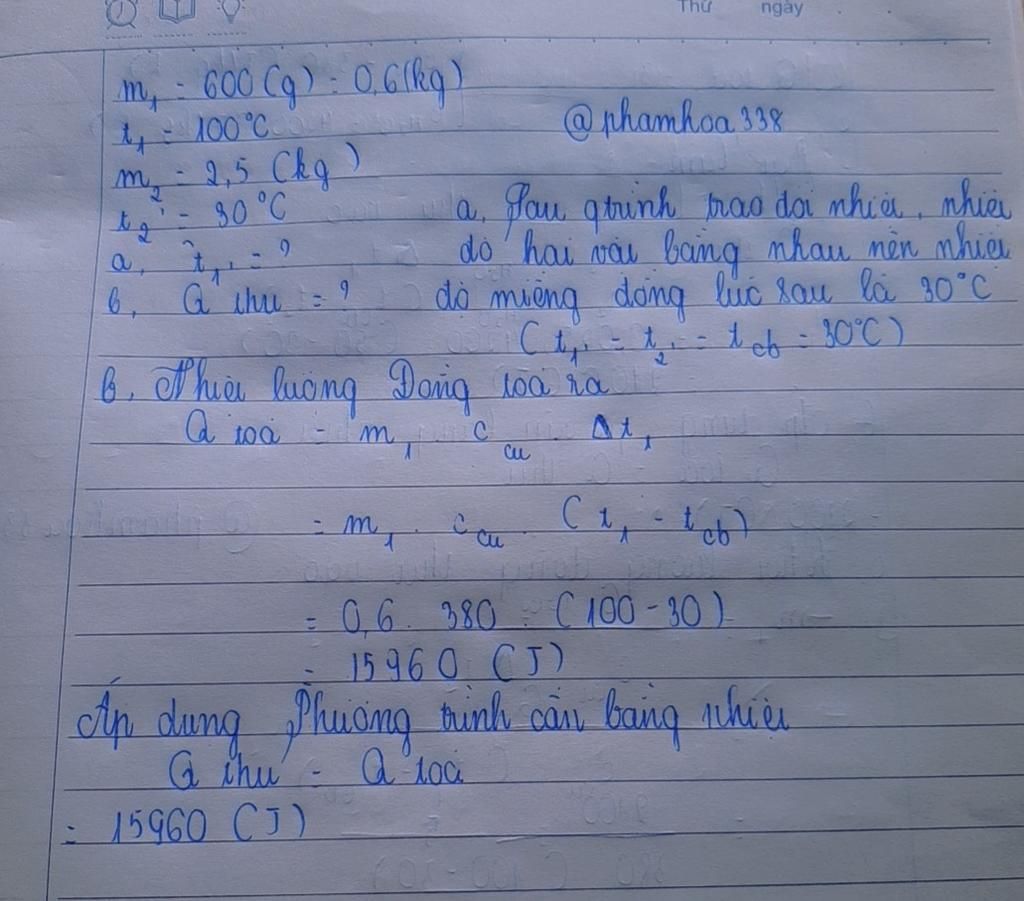 Thứ ngày
m₁ = 600 (g) = 0,6 (kg)
t₁ = 100°C
@phamhoa338
m₂ = 2,5 (kg)
t₂' = 30°C
a, t₁' = ?
b, Q thu = ?
a, Sau qtrình trao đổi nhiệt, nhiệt
độ hai vật bằng nhau nên nhiệt
độ miếng đồng lúc sau là 30°C
(t₁' = t₂' = t cb = 30°C)
b, Nhiệt lượng Đồng toả ra
Q toả = m₁ . c cu . Δt₁
= m₁ . c cu . (t₁ - t cb)
= 0,6 . 380 . (100 - 30)
= 15960 (J)
Áp dụng Phương trình cân bằng nhiệt
Q thu = Q toả
= 15960 (J)